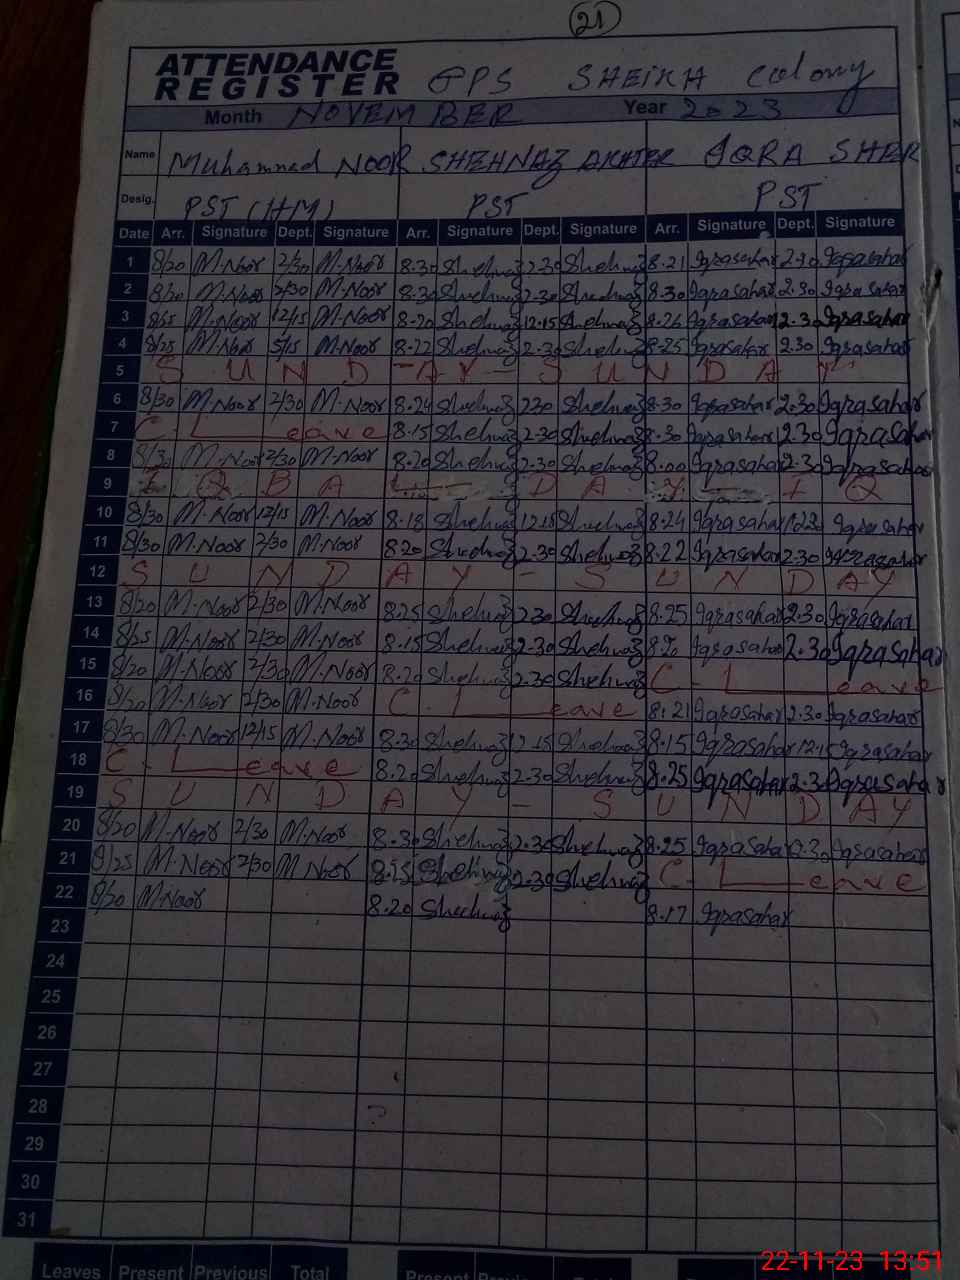 21
ATTENDANCE
REGISTER GPS SHEIKH Colony
Month NOVEMBER Year 2023
Name Muhammad NOOR SHEHNAZ AKHTER IQRA SHER
Desig. PST (HM) PST PST
Date Arr. Signature Dept. Signature Arr. Signature Dept. Signature Arr. Signature Dept. Signature
1 8/20 M.Noor 2/30 M.Noor 8.30 Shehnaz 2.30 Shehnaz 8.21 Iqrasahar 2.30 Iqrasahar
2 8/20 M.Noor 2/30 M.Noor 8.30 Shehnaz 2.30 Shehnaz 8.30 Iqrasahar 2.30 Iqrasahar
3 8/25 M.Noor 12/15 M.Noor 8.20 Shehnaz 12.15 Shehnaz 8.26 Iqrasahar 12.30 Iqrasahar
4 8/25 M.Noor 5/15 M.Noor 8.22 Shehnaz 2.30 Shehnaz 8.25 Iqrasahar 2.30 Iqrasahar
5 S U N D - A Y - S U N D A Y
6 8/30 M.Noor 2/30 M.Noor 8.24 Shehnaz 230 Shehnaz 8.30 Iqrasahar 2.30 Iqrasahar
7 C - Leave 8.15 Shehnaz 2.30 Shehnaz 8.30 Iqrasahar 2.30 Iqrasahar
8 8/30 M.Noor 2/30 M.Noor 8.20 Shehnaz 2.30 Shehnaz 8.00 Iqrasahar 2.30 Iqrasahar
9 I Q B A L D A Y I Q
10 8/30 M.Noor 12/15 M.Noor 8.18 Shehnaz 12.15 Shehnaz 8.24 Iqrasahar Iqrasahar
11 8/30 M.Noor 2/30 M.Noor 8.20 Shehnaz 2.30 Shehnaz 8.22 Iqrasahar 2.30 Iqrasahar
12 S U N D A Y - S U N D A Y
13 8/20 M.Noor 2/30 M.Noor 8.25 Shehnaz 230 Shehnaz 8.25 Iqrasahar 2.30 Iqrasahar
14 8/25 M.Noor 2/30 M.Noor 8.15 Shehnaz 2.30 Shehnaz 8.20 Iqrasahar 2.30 Iqrasahar
15 8/20 M.Noor 2/30 M.Noor 8.20 Shehnaz 2.30 Shehnaz C - Leave
16 8/20 M.Noor 2/30 M.Noor C - Leave 8.21 Iqrasahar 2.30 Iqrasahar
17 8/30 M.Noor 12/15 M.Noor 8.30 Shehnaz 12.15 Shehnaz 8.15 Iqrasahar 12.15 Iqrasahar
18 C - Leave 8.20 Shehnaz 2.30 Shehnaz 8.25 Iqrasahar 2.30 Iqrasahar
19 S U N D A Y - S U N D A Y
20 8/20 M.Noor 2/30 M.Noor 8.30 Shehnaz 2.30 Shehnaz 8.25 Iqrasahar 2.30 Iqrasahar
21 8/25 M.Noor 2/30 M.Noor 8.15 Shehnaz 2.30 Shehnaz C - Leave
22 8/20 M.Noor 8.20 Shehnaz 8.17 Iqrasahar
23
24
25
26
27
28
29
30
31
Leaves Present Previous Total Present
22-11-23 13:51